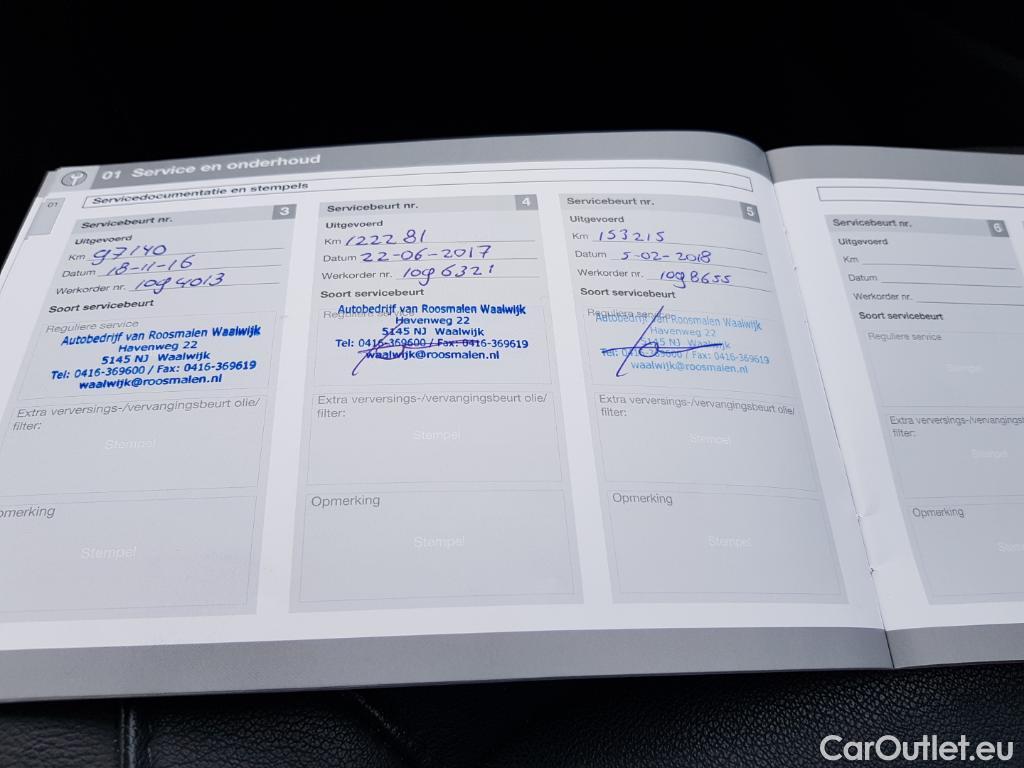 01 Service en onderhoud
Servicedocumentatie en stempels
01
Servicebeurt nr. 3
Uitgevoerd
Km 97140
Datum 18-11-16
Werkorder nr. 1094013
Soort servicebeurt
Reguliere service
Autobedrijf van Roosmalen Waalwijk
Havenweg 22
5145 NJ Waalwijk
Tel: 0416-369600 / Fax: 0416-369619
waalwijk@roosmalen.nl
Extra verversings-/vervangingsbeurt olie/
filter:
Stempel
pmerking
Stempel
Servicebeurt nr. 4
Uitgevoerd
Km 122281
Datum 22-06-2017
Werkorder nr. 1096321
Soort servicebeurt
Reguliere service
Autobedrijf van Roosmalen Waalwijk
Havenweg 22
5145 NJ Waalwijk
Tel: 0416-369600 / Fax: 0416-369619
waalwijk@roosmalen.nl
Extra verversings-/vervangingsbeurt olie/
filter:
Stempel
Opmerking
Stempel
Servicebeurt nr. 5
Uitgevoerd
Km 153215
Datum 5-02-2018
Werkorder nr. 1098655
Soort servicebeurt
Reguliere service
Autobedrijf van Roosmalen Waalwijk
Havenweg 22
5145 NJ Waalwijk
Tel: 0416-369600 / Fax: 0416-369619
waalwijk@roosmalen.nl
Extra verversings-/vervangingsbeurt olie/
filter:
Stempel
Opmerking
Stempel
Servicebeurt nr. 6
Uitgevoerd
Km
Datum
Werkorder nr.
Soort servicebeurt
Reguliere service
Stempel
Extra verversings-/vervangings
filter:
Stempel
Opmerking
Stempel
CarOutlet.eu